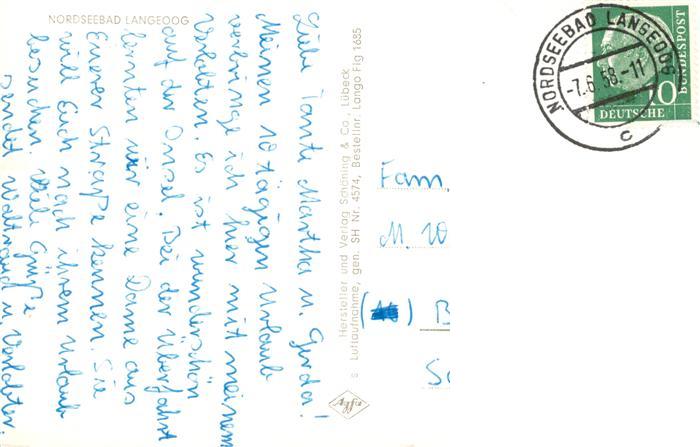 NORDSEEBAD LANGEOOG
Liebe Tante Martha u. Gerda!
Meinen 10 tägigen Urlaub
verbringe ich hier mit meinem
Verlobten. Es ist wunderschön
auf der Insel. Bei der Überfahrt
lernten wir eine Dame aus
Eurer Straße kennen. Sie
will Euch nach ihrem Urlaub
besuchen. Viele Grüße
sendet Waltraud u. Verlobter.
Hersteller und Verlag Schöning & Co., Lübeck
s Luftaufnahme, gen. SH Nr. 4574, Bestellnr. Lango Flg 1685
Agfa
NORDSEEBAD LANGEOOG
-7.6.58.-11
c
DEUTSCHE
BUNDESPOST
0
Fam.
M. 10
(16) B
Sc